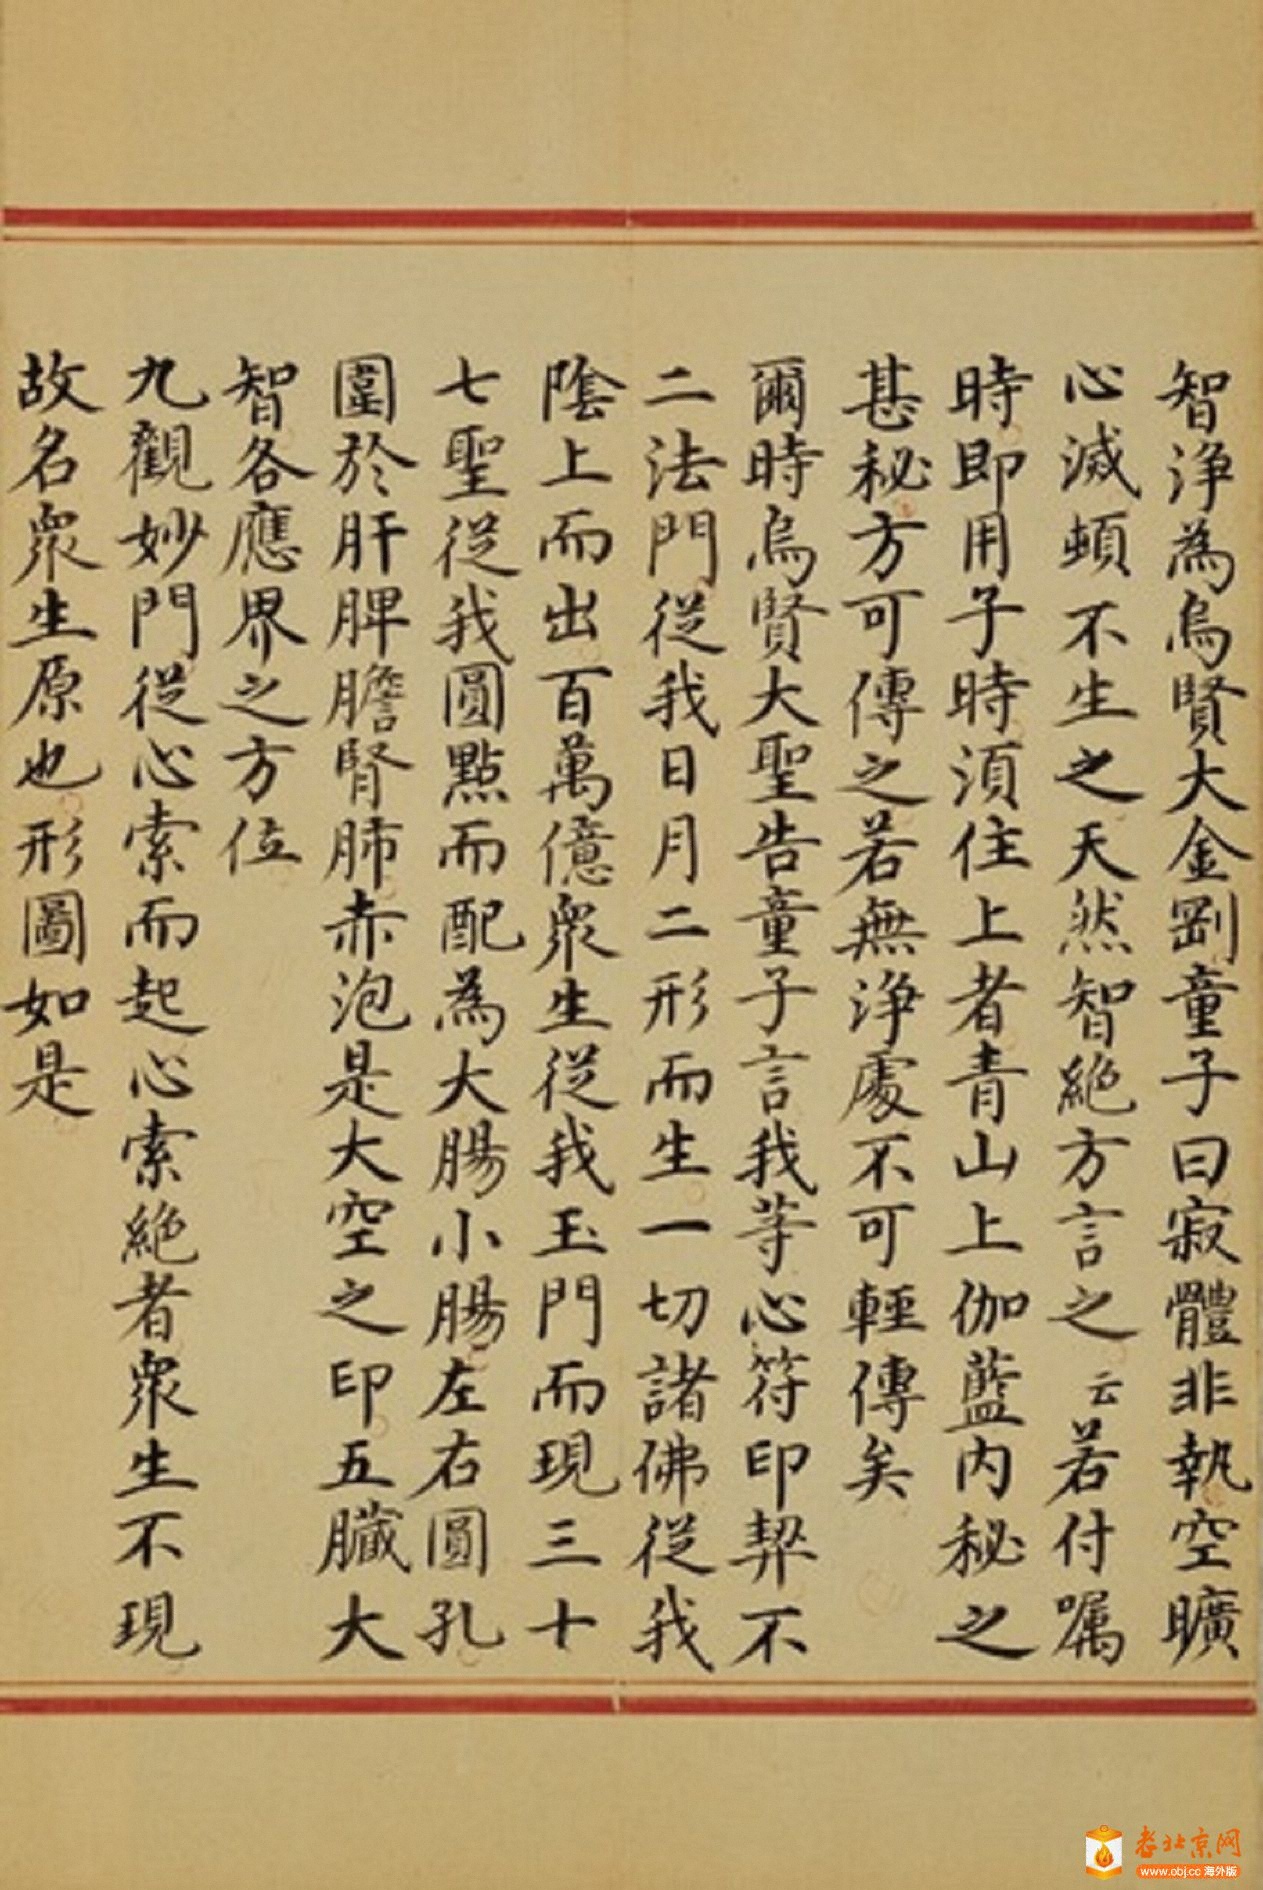 智淨為烏賢大金剛童子曰寂體非執空曠
心滅頓不生之天然智絕方言之云若付囑
時即用子時須住上者青山上伽藍內秘之
甚秘方可傳之若無淨處不可輕傳矣
爾時烏賢大聖告童子言我等心符印契不
二法門從我日月二形而生一切諸佛從我
陰上而出百萬億眾生從我玉門而現三十
七聖從我圓點而配為大腸小腸左右圓孔
圍於肝脾膽腎肺赤泡是大空之印五臟大
智各應界之方位
九觀妙門從心索而起心索絕者眾生不現
故名眾生原也形圖如是
老北京网
www.obj.cc 海外版